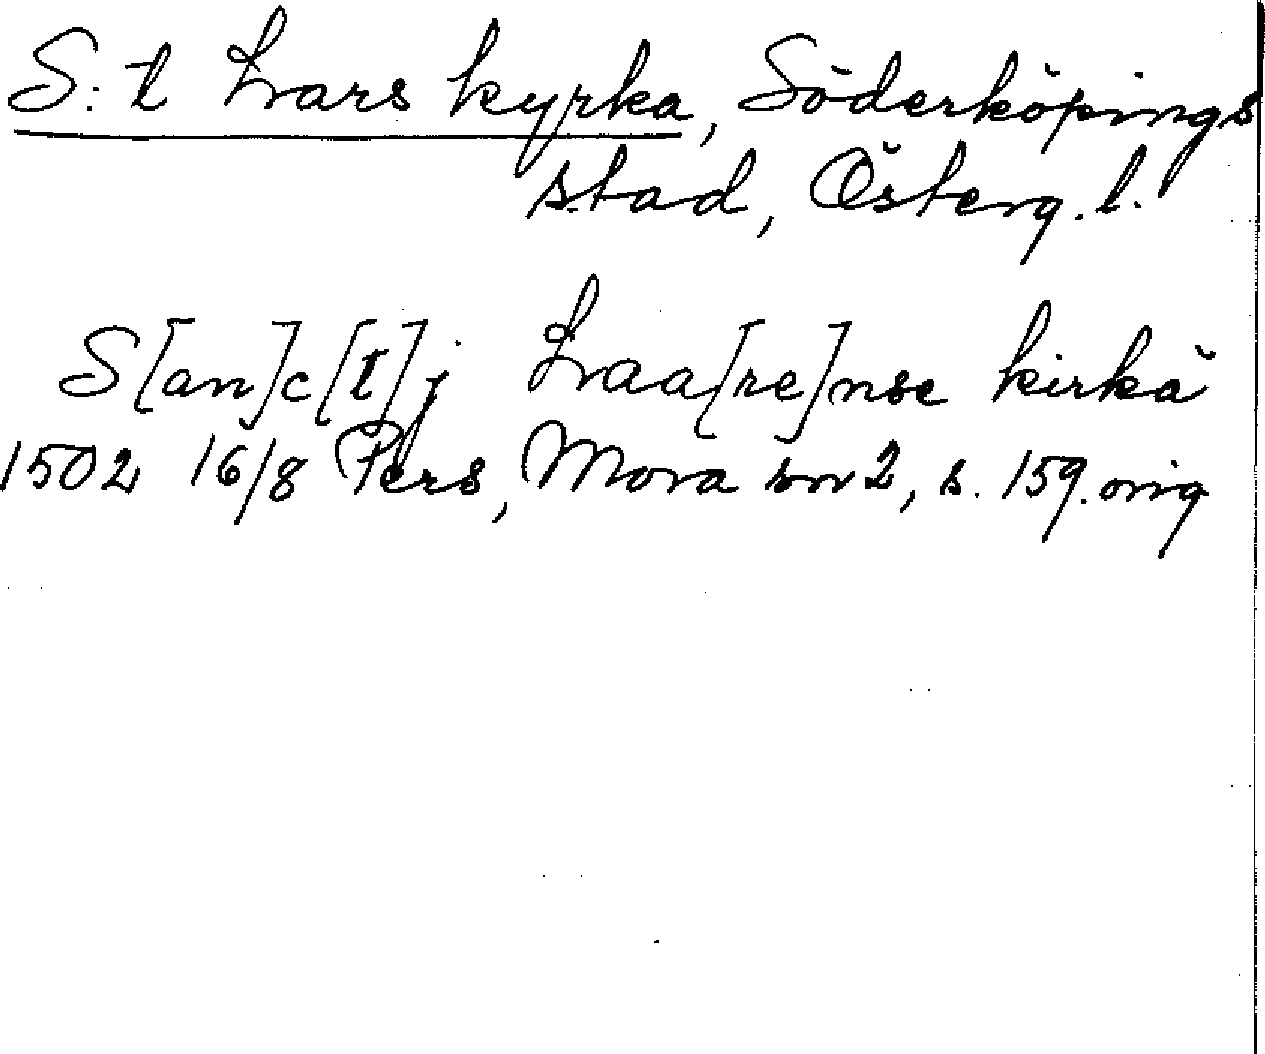 S:t Lars kyrka, Söderköpings
stad, Österg. l.
S[an]c[t]j Laa[re]nse kirkä
1502 16/8 Pers, Mora sn 2, s. 159. orig